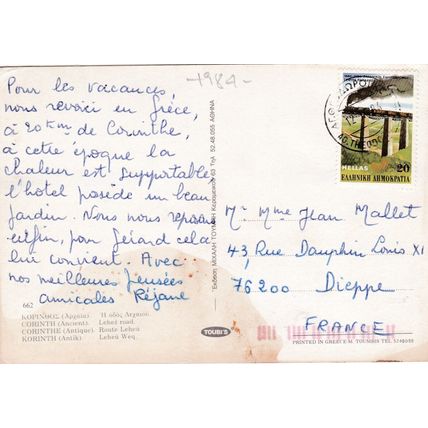 -1984-
Pour les vacances,
nous revoici en Grèce,
à 20 Km de Corinthe,
à cette époque la
chaleur est supportable
l'hôtel posède un beau
jardin. Nous nous reposons
enfin, pour Gérard cela
lui convient. Avec
nos meilleures pensées
amicales Réjane
662
ΚΟΡΙΝΘΟΣ (Αρχαία). Ἡ ὁδός Λεχαίου.
CORINTH (Ancient). Lehei road.
CORINTHE (Antique). Route Leheü
KORINTH (Antik) Leheü Weg.
Έκδοση ΜΙΧΑΛΗ ΤΟΥΜΠΗ Κεραμεικού 63 Τηλ 52.48.055 ΑΘΗΝΑ
TOUBI'S
HELLAS 20
ΕΛΛΗΝΙΚΗ ΔΗΜΟΚΡΑΤΙΑ
Mr Mme Jean Mallet
43, Rue Dauphin Louis XI
76200 Dieppe
FRANCE
PRINTED IN GREECE M. TOUMBIS TEL.